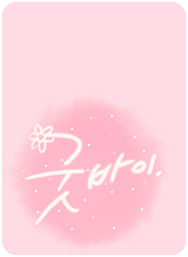 굿바이.